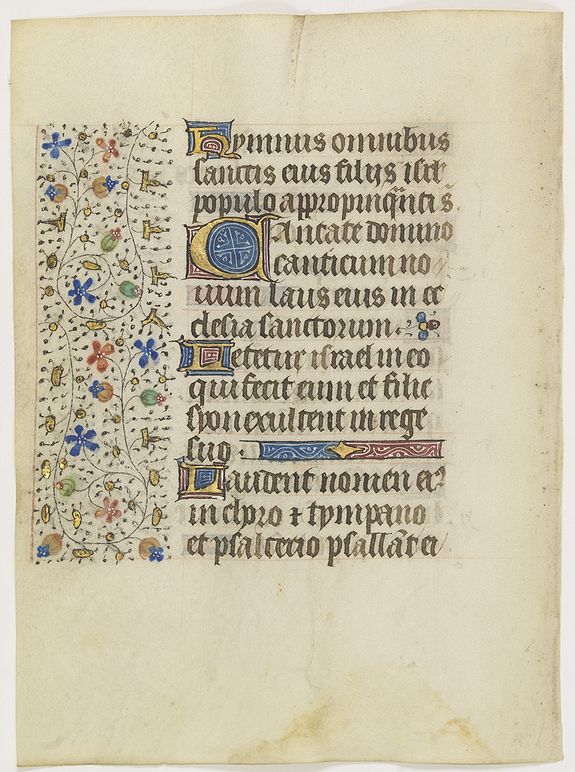 Hymnus omnibus
sanctis eius filijs isrl
populo appropinq̃nti s̃
Cantate domino
canticum no
uum laus eius in ec
clesia sanctorum
Letetur israel in eo
qui fecit eum et filie
syon exultent in rege
suo
Laudent nomen ei9
in choro ⁊ tympano
et psalterio psallãt ei